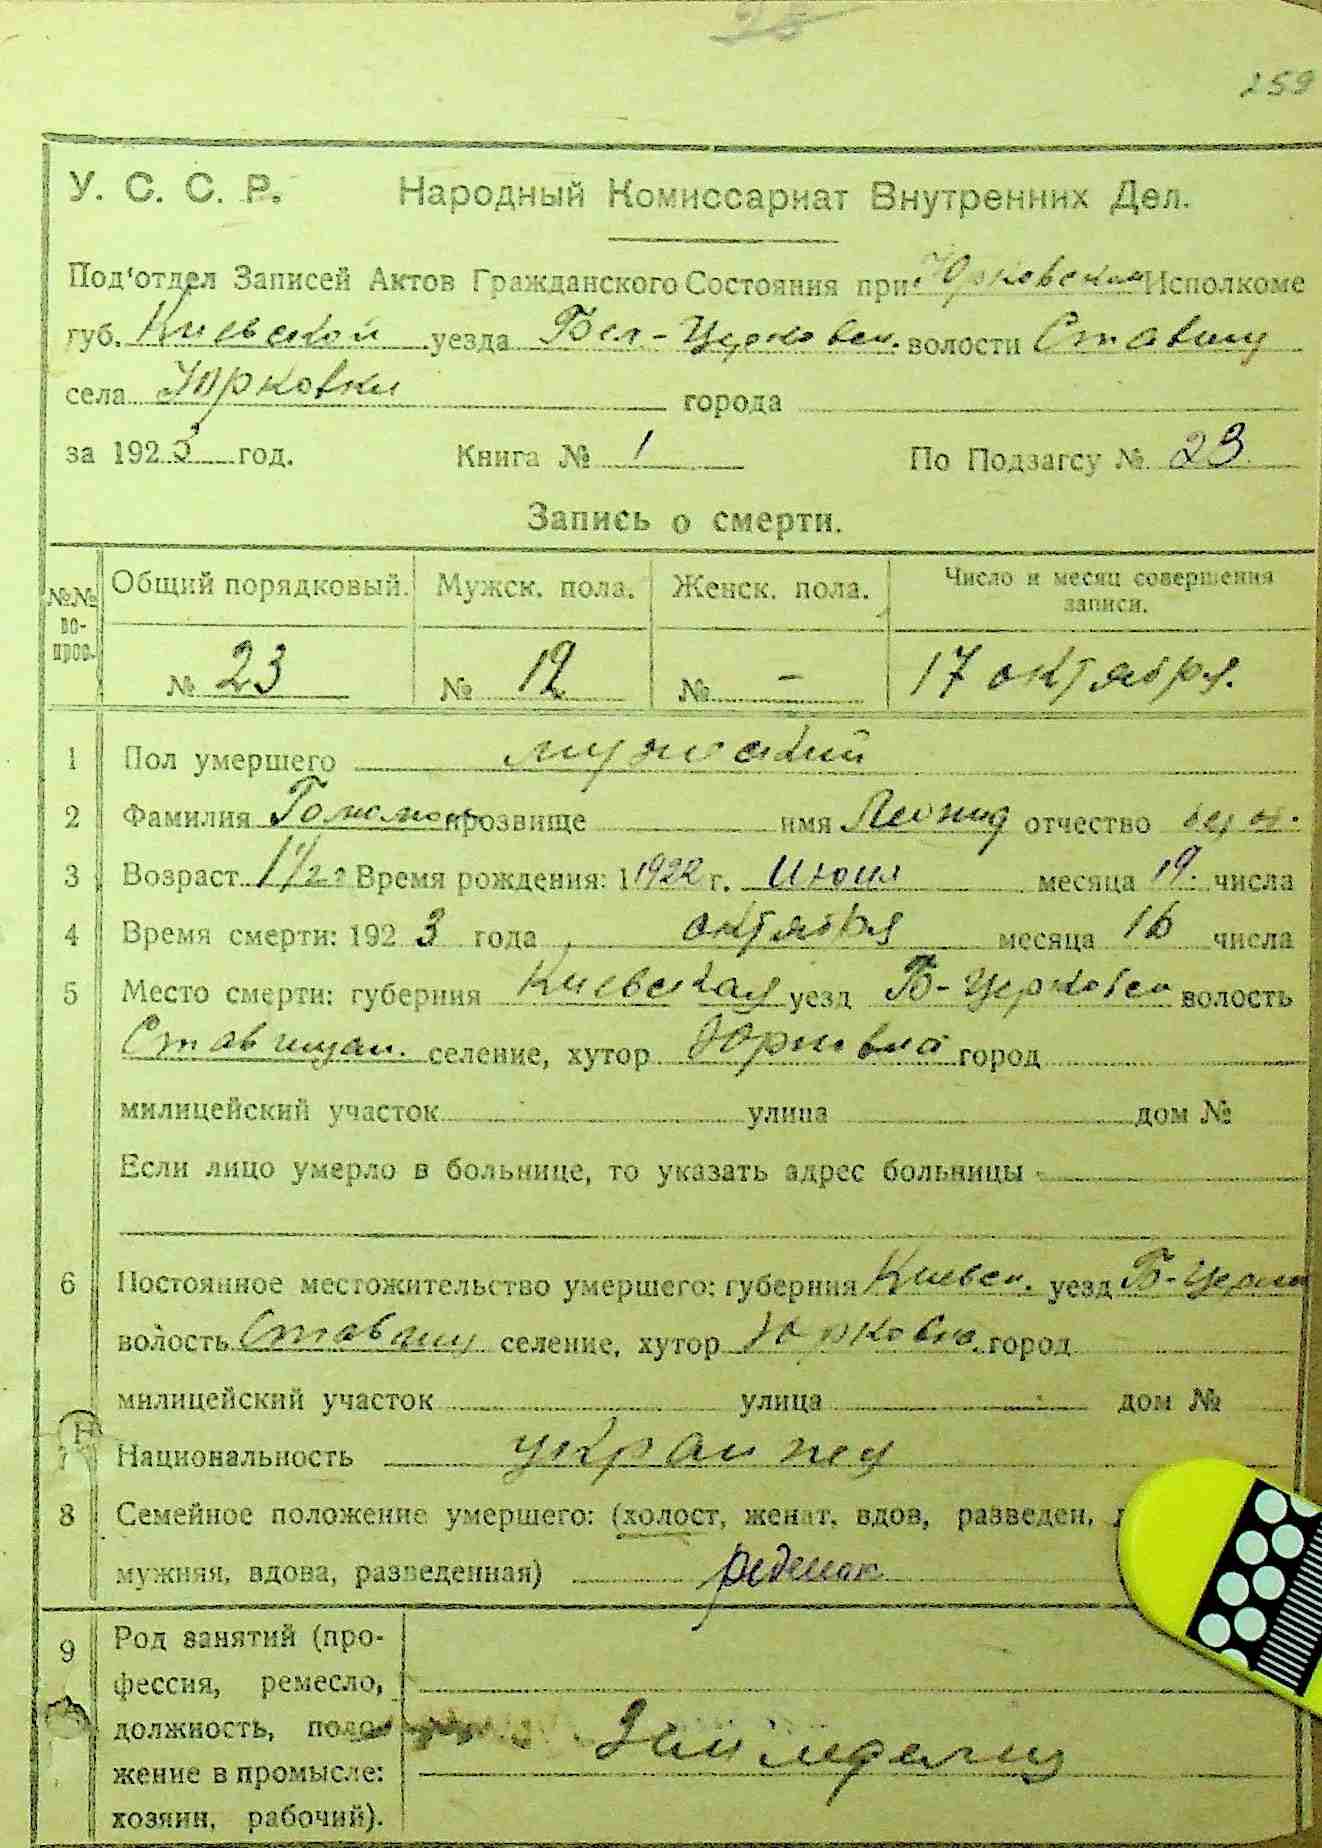 28
259
У. С. С. Р. Народный Комиссариат Внутренних Дел.
Под'отдел Записей Актов Гражданского Состояния при Юрковском Исполкоме
губ. Киевской уезда Бел-Церковск. волости Ставищ
села Юрковки города
за 1923 год. Книга № 1 По Подзагсу № 23
Запись о смерти.
№№ вопрос. Общий порядковый. Мужск. пола. Женск. пола. Число и месяц совершения записи.
№ 23 № 12 № - 17 октября.
1 Пол умершего мужской
2 Фамилия прозвище имя Леонид отчество
3 Возраст 1 1/2 г Время рождения: 1 1922 г. Июня месяца 19. числа
4 Время смерти: 1923 года октября месяца 16 числа
5 Место смерти: губерния Киевская уезд Б-Церковск волость
Ставищан. селение, хутор Юрковка город
милицейский участок улица дом №
Если лицо умерло в больнице, то указать адрес больницы
6 Постоянное местожительство умершего: губерния Киевск. уезд Б-Церк
волость Ставищ селение, хутор Юрковка город
милицейский участок улица дом №
7 Национальность украинец
8 Семейное положение умершего: (холост, женат, вдов, разведен,
мужняя, вдова, разведенная) ребенок
9 Род занятий (про-
фессия, ремесло,
должность, поло-
жение в промысле:
хозяин, рабочий).